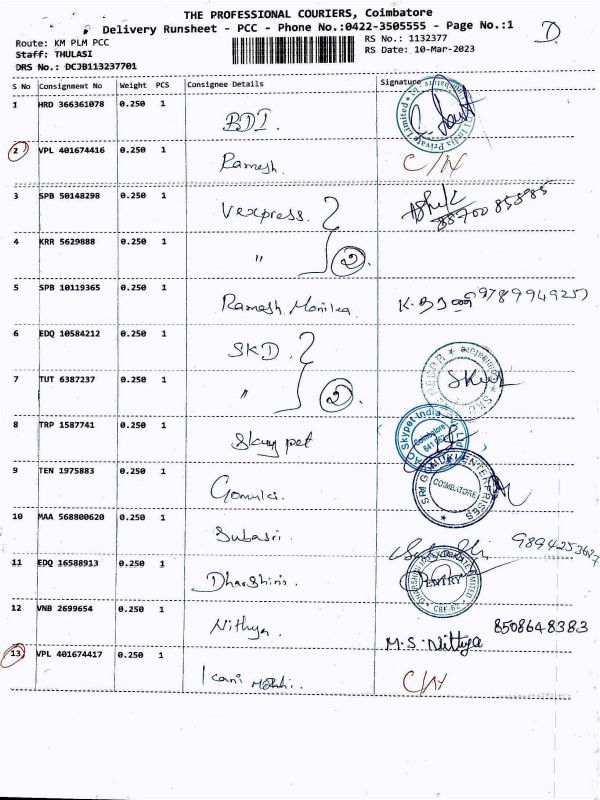 THE PROFESSIONAL COURIERS, Coimbatore
Delivery Runsheet - PCC - Phone No.:0422-3505555 - Page No.:1
D
Route: KM PLM PCC
RS No.: 1132377
Staff: THULASI
RS Date: 10-Mar-2023
DRS No.: DCJB113237701
S No Consignment No Weight PCS Consignee Details Signature
1 HRD 366361078 0.250 1 BDI
India Private Limited
2 VPL 401674416 0.250 1 Ramesh. C/N
3 SPB 50148298 0.250 1 Vexpress.
4 KRR 5629888 0.250 1 " 2
5 SPB 10119365 0.250 1 Ramesh Monika 9789949257
6 EDQ 10584212 0.250 1 SKD.
7 TUT 6387237 0.250 1 " 2
8 TRP 1587741 0.250 1 Skypet
Skypet India
Coimbatore
9 TEN 1975883 0.250 1
SRI GOMUKI ENTERPRISES
COIMBATORE
10 MAA 568800620 0.250 1 Subasri.
11 EDQ 16588913 0.250 1 Dharshini.
ENTRY
CBE-62
12 VNB 2699654 0.250 1 Nithya. M.S. Nithya 8508648383
13 VPL 401674417 0.250 1 C/N